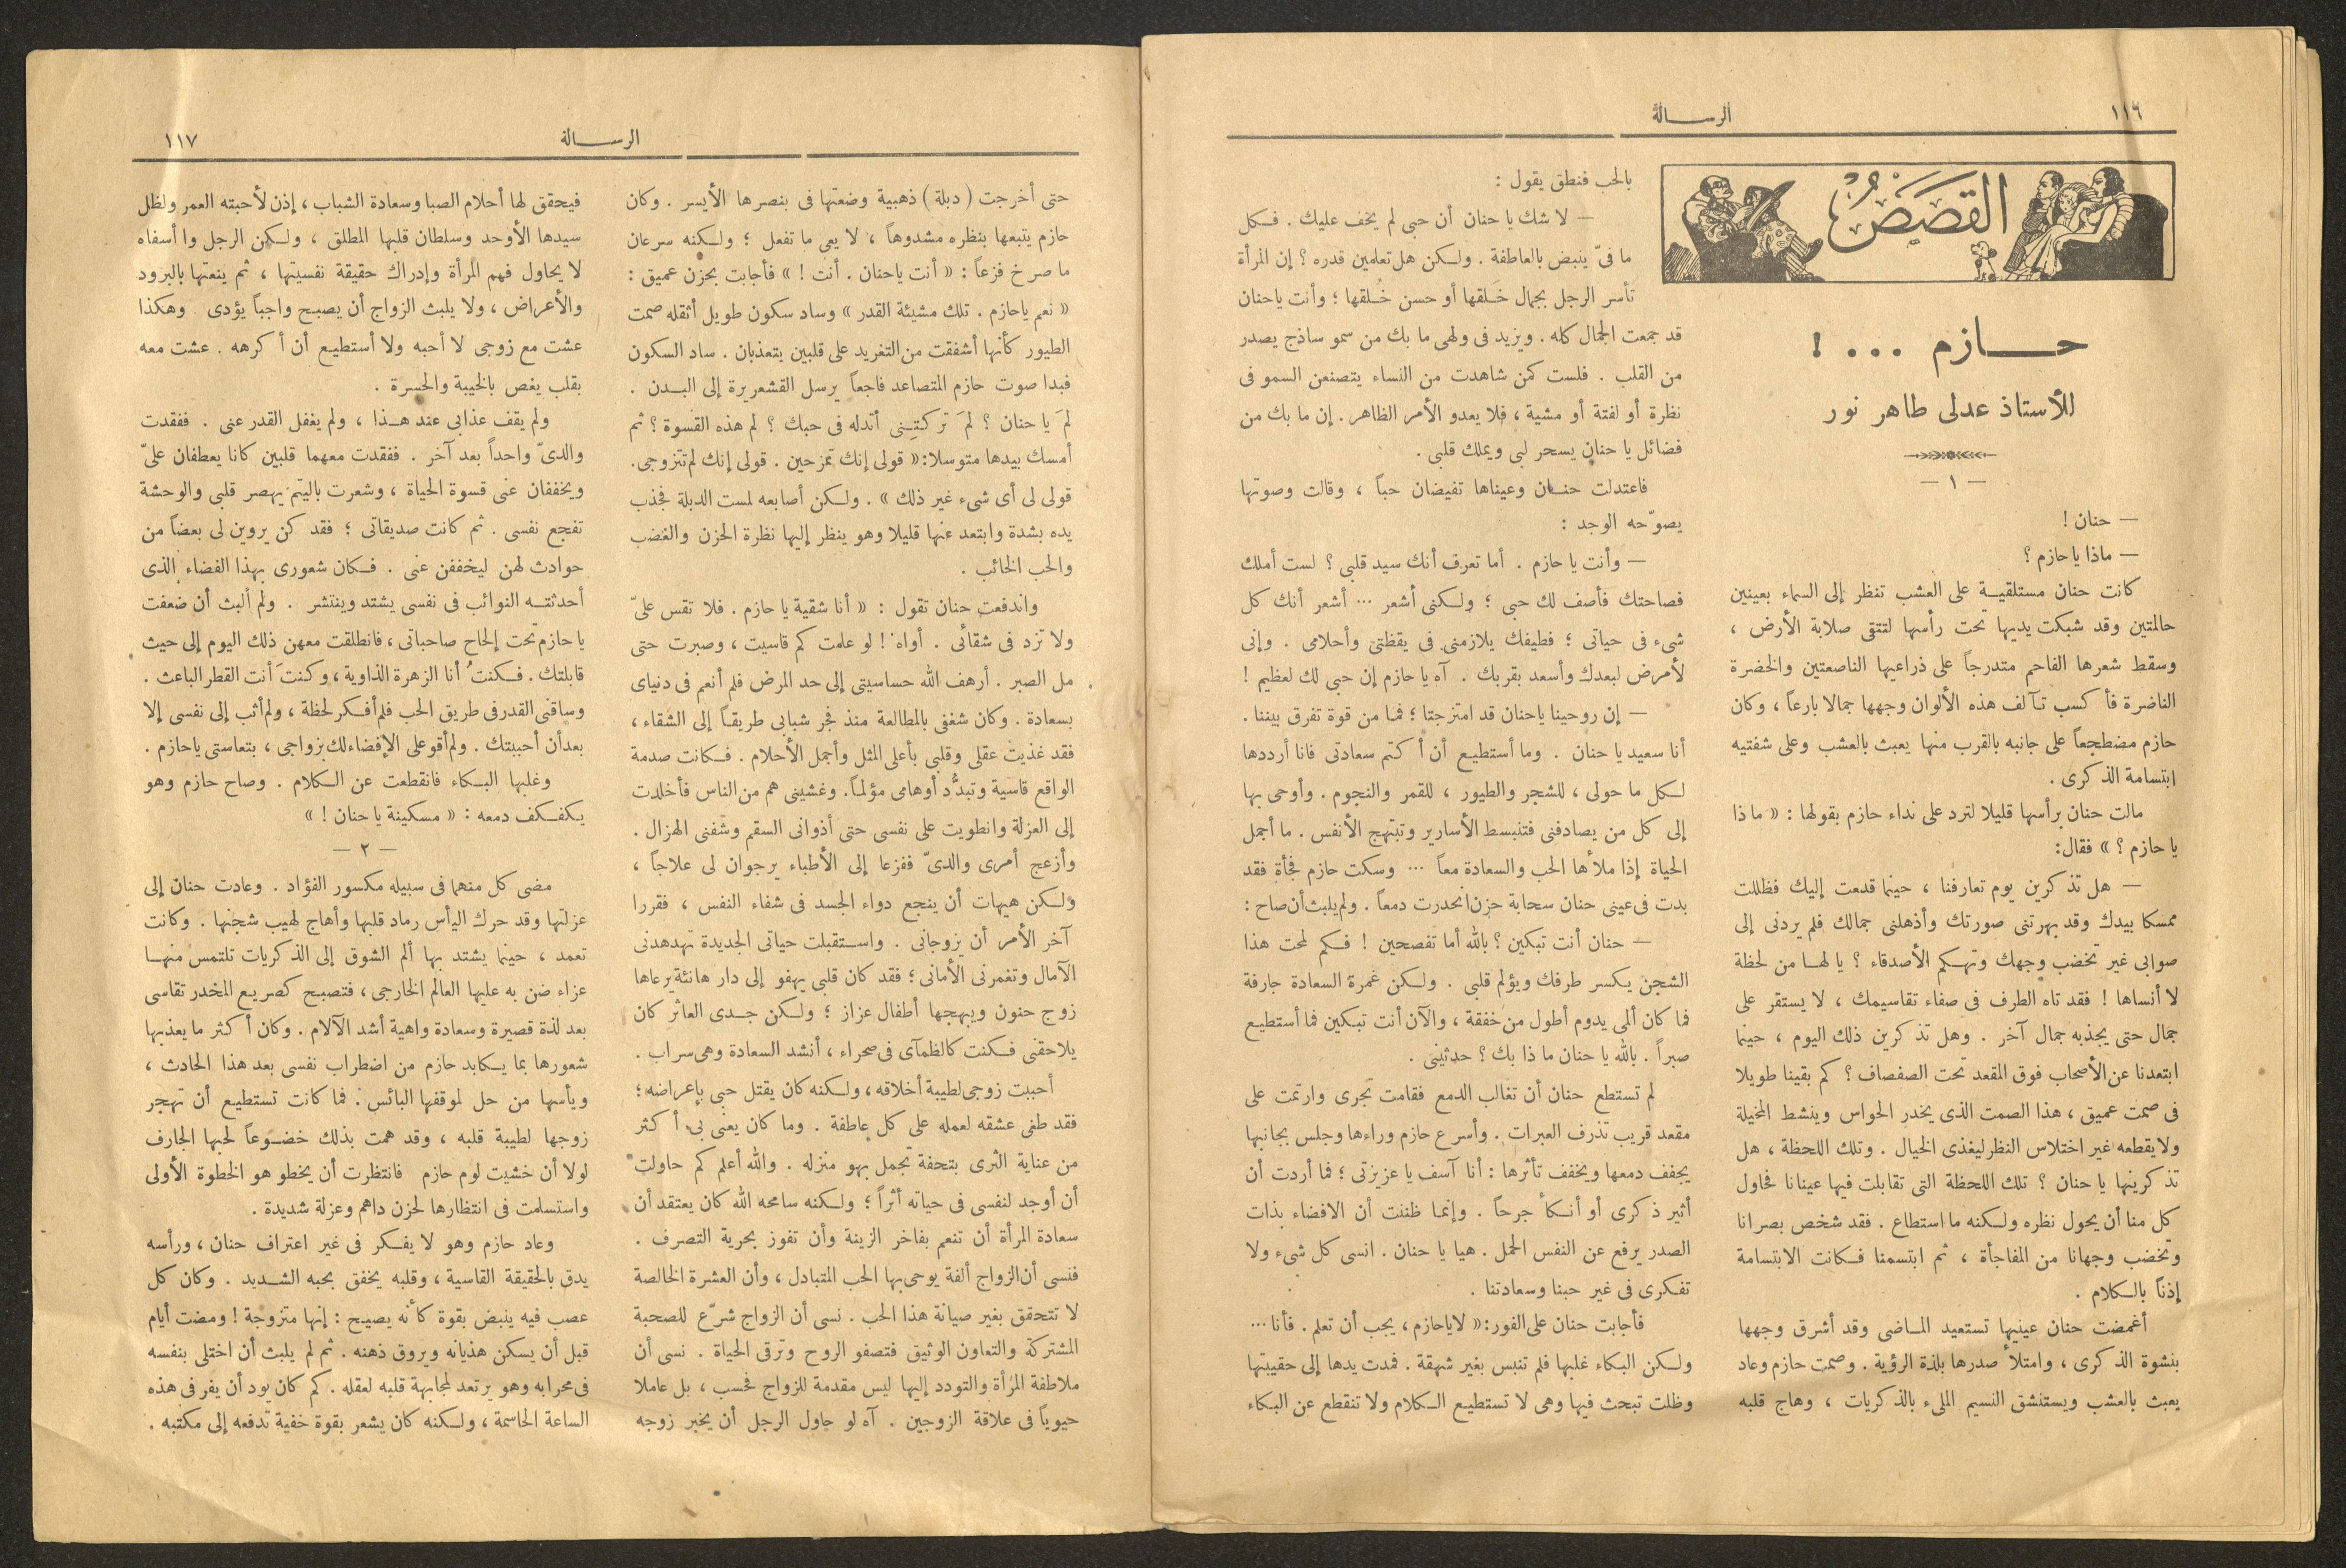 ١١٦
الرسالة
القصص
حازم ... !
للأستاذ عدلى طاهر نور
— ١ —
— حنان !
— ماذا يا حازم ؟
كانت حنان مستلقية على العشب تنظر إلى السماء بعينين
حالمتين وقد شبكت يديها تحت رأسها لتتقى صلابة الأرض ،
وسقط شعرها الفاحم متدرجاً على ذراعيها الناصعتين والخضرة
الناضرة فأكسب تآلف هذه الألوان وجهها جمالا بارعاً ، وكان
حازم مضطجعاً على جانبه بالقرب منها يعبث بالعشب وعلى شفتيه
ابتسامة الذكرى .
مالت حنان برأسها قليلا لترد على نداء حازم بقولها : « ماذا
يا حازم ؟ » فقال:
— هل تذكرين يوم تعارفنا ، حينما قدمت إليك فظللت
ممسكا بيدك وقد بهرتنى صورتك وأذهلنى جمالك فلم يردنى إلى
صوابى غير تخضب وجهك وتهكم الأصدقاء ؟ يا لها من لحظة
لا أنساها ! فقد تاه الطرف فى صفاء تقاسيمك ، لا يستقر على
جمال حتى يجذبه جمال آخر . وهل تذكرين ذلك اليوم ، حينما
ابتعدنا عن الأصحاب فوق المقعد تحت الصفصاف ؟ كم بقينا طويلا
فى صمت عميق ، هذا الصمت الذى يخدر الحواس وينشط المخيلة
ولا يقطعه غير اختلاس النظر ليغذى الخيال . وتلك اللحظة ، هل
تذكرينها يا حنان ؟ تلك اللحظة التى تقابلت فيها عينانا فحاول
كل منا أن يحول نظره ولكنه ما استطاع . فقد شخص بصرانا
وتخضب وجهانا من المفاجأة ، ثم ابتسمنا فكانت الابتسامة
إذناً بالكلام .
أغمضت حنان عينيها تستعيد الماضى وقد أشرق وجهها
بنشوة الذكرى ، وامتلأ صدرها بلذة الرؤية . وصمت حازم وعاد
يعبث بالعشب ويستنشق النسيم الملىء بالذكريات ، وهاج قلبه
بالحب فنطق يقول :
— لا شك يا حنان أن حبى لم يخف عليك . فكل
ما فىّ ينبض بالعاطفة . ولكن هل تعلمين قدره ؟ إن المرأة
تأسر الرجل بجمال خَلقها أو حسن خُلقها ؛ وأنت يا حنان
قد جمعت الجمال كله . ويزيد فى ولهى ما بك من سمو ساذج يصدر
من القلب . فلست كمن شاهدت من النساء يتصنعن السمو فى
نظرة أو لفتة أو مشية ، فلا يعدو الأمر الظاهر . إن ما بك من
فضائل يا حنان يسحر لبى ويملك قلبى .
فاعتدلت حنان وعيناها تفيضان حباً ، وقالت وصوتها
يصوّحه الوجد :
— وأنت يا حازم . أما تعرف أنك سيد قلبى ؟ لست أملك
فصاحتك فأصف لك حبى ؛ ولكنى أشعر ... أشعر أنك كل
شىء فى حياتى ؛ فطيفك يلازمنى فى يقظتى وأحلامى . وإنى
لأمرض لبعدك وأسعد بقربك . آه يا حازم إن حبى لك لعظيم !
— إن روحينا يا حنان قد امتزجتا ؛ فما من قوة تفرق بيننا .
أنا سعيد يا حنان . وما أستطيع أن أكتم سعادتى فانا أرددها
لكل ما حولى ، للشجر والطيور ، للقمر والنجوم . وأوحى بها
إلى كل من يصادفنى فتنبسط الأسارير وتبتهج الأنفس . ما أجمل
الحياة إذا ملأها الحب والسعادة معاً ... وسكت حازم فجأة فقد
بدت فى عينى حنان سحابة حزن انحدرت دمعاً . ولم يلبث أن صاح :
— حنان أنت تبكين ؟ بالله أما تفصحين ! فكم لمحت هذا
الشجن يكسر طرفك ويؤلم قلبى . ولكن غمرة السعادة جارفة
فما كان ألمى يدوم أطول من خفقة ، والآن أنت تبكين فما أستطيع
صبراً . بالله يا حنان ماذا بك ؟ حدثينى .
لم تستطع حنان أن تغالب الدمع فقامت تجرى وارتمت على
مقعد قريب تذرف العبرات . وأسرع حازم وراءها وجلس بجانبها
يجفف دمعها ويخفف تأثرها : أنا آسف يا عزيزتى ؛ فما أردت أن
أثير ذكرى أو أنكأ جرحاً . وإنما ظننت أن الافضاء بذات
الصدر يرفع عن النفس الحمل . هيا يا حنان . انسى كل شىء ولا
تفكرى فى غير حبنا وسعادتنا .
فأجابت حنان على الفور: « لا يا حازم ، يجب أن تعلم . فأنا ...
ولكن البكاء غلبها فلم تنبس بغير شهقة . فمدت يدها إلى حقيبتها
وظلت تبحث فيها وهى لا تستطيع الكلام ولا تنقطع عن البكاء
الرسالة
١١٧
حتى أخرجت ( دبلة ) ذهبية وضعتها فى بنصرها الأيسر . وكان
حازم يتبعها بنظره مشدوهاً ، لا يعى ما تفعل ؛ ولكنه سرعان
ما صرخ فزعاً : « أنت يا حنان . أنت ! » فأجابت بحزن عميق :
« نعم يا حازم . تلك مشيئة القدر » وساد سكون طويل أثقله صمت
الطيور كأنها أشفقت من التغريد على قلبين يتعذبان . ساد السكون
فبدا صوت حازم المتصاعد فاجعاً يرسل القشعريرة إلى البدن .
لمَ يا حنان ؟ لمَ تركتِنى أتدله فى حبك ؟ لم هذه القسوة ؟ ثم
أمسك بيدها متوسلا: « قولى إنك تمزحين . قولى إنك لم تتزوجى.
قولى لى أى شىء غير ذلك » . ولكن أصابعه لمست الدبلة فجذب
يده بشدة وابتعد عنها قليلا وهو ينظر إليها نظرة الحزن والغضب
والحب الخائب .
واندفعت حنان تقول : « أنا شقية يا حازم . فلا تقس علىّ
ولا تزد فى شقائى . أواه ! لو علمت كم قاسيت ، وصبرت حتى
مل الصبر . أرهف الله حساسيتى إلى حد المرض فلم أنعم فى دنياى
بسعادة . وكان شغفى بالمطالعة منذ فجر شبابى طريقاً إلى الشقاء ،
فقد غذيت عقلى وقلبى بأعلى المثل وأجمل الأحلام . فكانت صدمة
الواقع قاسية وتبدُّد أوهامى مؤلماً. وغشينى هم من الناس فأخلدت
إلى العزلة وانطويت على نفسى حتى أذوانى السقم وشفنى الهزال .
وأزعج أمرى والدىّ ففزعا إلى الأطباء يرجوان لى علاجاً ،
ولكن هيهات أن ينجع دواء الجسد فى شفاء النفس ، فقررا
آخر الأمر أن يزوجانى . واستقبلت حياتى الجديدة تهدهدنى
الآمال وتغمرنى الأمانى ؛ فقد كان قلبى يهفو إلى دار هانئة يرعاها
زوج حنون ويبهجها أطفال عزاز ؛ ولكن جدى العاثر كان
يلاحقنى فكنت كالظمآى فى صحراء ، أنشد السعادة وهى سراب .
أحببت زوجى لطيبة أخلاقه ، ولكنه كان يقتل حبى بإعراضه ؛
فقد طغى عشقه لعمله على كل عاطفة . وما كان يعنى بى أكثر
من عناية الثرى بتحفة تجمل بهو منزله . والله أعلم كم حاولت
أن أوجد لنفسى فى حياته أثراً ؛ ولكنه سامحه الله كان يعتقد أن
سعادة المرأة أن تنعم بفاخر الزينة وأن تفوز بحرية التصرف .
فنسى أن الزواج ألفة يوحى بها الحب المتبادل ، وأن العشرة الخالصة
لا تتحقق بغير صيانة هذا الحب . نسى أن الزواج شرّع للصحبة
المشتركة والتعاون الوثيق فتصفو الروح وترقى الحياة . نسى أن
ملاطفة المرأة والتودد إليها ليس مقدمة للزواج فحسب ، بل عاملا
حيوياً فى علاقة الزوجين . آه لو حاول الرجل أن يخبر زوجه
فيحقق لها أحلام الصبا وسعادة الشباب ، إذن لأحبته العمر ولظل
سيدها الأوحد وسلطان قلبها المطلق ، ولكن الرجل وا أسفاه
لا يحاول فهم المرأة وإدراك حقيقة نفسيتها ، ثم ينعتها بالبرود
والأعراض ، ولا يلبث الزواج أن يصبح واجباً يؤدى . وهكذا
عشت مع زوجى لا أحبه ولا أستطيع أن أكرهه . عشت معه
بقلب يغص بالخيبة والحسرة .
ولم يقف عذابى عند هذا ، ولم يغفل القدر عنى . ففقدت
والدىّ واحداً بعد آخر . ففقدت معهما قلبين كانا يعطفان علىّ
ويخففان عنى قسوة الحياة ، وشعرت باليتم يهصر قلبى والوحشة
تفجع نفسى . ثم كانت صديقاتى ؛ فقد كن يروين لى بعضاً من
حوادث لهن ليخففن عنى . فكان شعورى بهذا الفضاء الذى
أحدثته النوائب فى نفسى يشتد وينتشر . ولم ألبث أن ضعفت
يا حازم تحت إلحاح صاحباتى ، فانطلقت معهن ذلك اليوم إلى حيث
قابلتك . فكنتُ أنا الزهرة الذاوية ، وكنتَ أنت القطر الباعث .
وساقنى القدر فى طريق الحب فلم أفكر لحظة ، ولم أثب إلى نفسى إلا
بعد أن أحببتك . ولم أقو على الإفضاء لك بزواجى ، بتعاستى يا حازم .
وغلبها البكاء فانقطعت عن الكلام . وصاح حازم وهو
يكفكف دمعه : « مسكينة يا حنان ! »
— ٢ —
مضى كل منهما فى سبيله مكسور الفؤاد . وعادت حنان إلى
عزلتها وقد حرك اليأس رماد قلبها وأهاج لهيب شجنها . وكانت
تعمد ، حينما يشتد بها ألم الشوق إلى الذكريات تلتمس منها
عزاء ضن به عليها العالم الخارجى ، فتصبح كصريع المخدر تقاسى
بعد لذة قصيرة وسعادة واهية أشد الآلام . وكان أكثر ما يعذبها
شعورها بما يكابد حازم من اضطراب نفسى بعد هذا الحادث ،
ويأسها من حل لموقفها البائس . فما كانت تستطيع أن تهجر
زوجها لطيبة قلبه ، وقد همت بذلك خضوعاً لحبها الجارف
لولا أن خشيت لوم حازم فانتظرت أن يخطو هو الخطوة الأولى
واستسلمت فى انتظارها لحزن داهم وعزلة شديدة .
وعاد حازم وهو لا يفكر فى غير اعتراف حنان ، ورأسه
يدق بالحقيقة القاسية ، وقلبه يخفق بحبه الشديد . وكان كل
عصب فيه ينبض بقوة كأنه يصيح : إنها متزوجة ! ومضت أيام
قبل أن يسكن هذيانه ويروق ذهنه . ثم لم يلبث أن اختلى بنفسه
فى محرابه وهو يرتعد لمجابهة قلبه لعقله . كم كان يود أن يفر فى هذه
الساعة الحاسمة ، ولكنه كان يشعر بقوة خفية تدفعه إلى مكتبه .